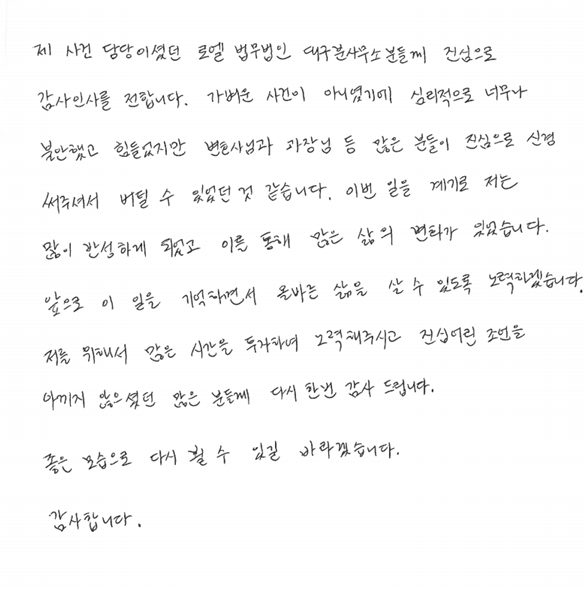 제 사건 담당이셨던 로엘 법무법인 대구분사무소분들께 진심으로
감사인사를 전합니다. 가벼운 사건이 아니였기에 심리적으로 너무나
불안했고 힘들었지만 변호사님과 과장님 등 많은 분들이 진심으로 신경
써주셔서 버틸 수 있었던 것 같습니다. 이번 일을 계기로 저는
많이 반성하게 되었고 이를 통해 많은 삶의 변화가 있었습니다.
앞으로 이 일을 기억하면서 올바른 삶을 살 수 있도록 노력하겠습니다.
저를 위해서 많은 시간을 투자하여 노력해주시고 진심어린 조언을
아끼지 않으셨던 많은 분들께 다시 한번 감사 드립니다.
좋은 모습으로 다시 뵐 수 있길 바라겠습니다.
감사합니다.